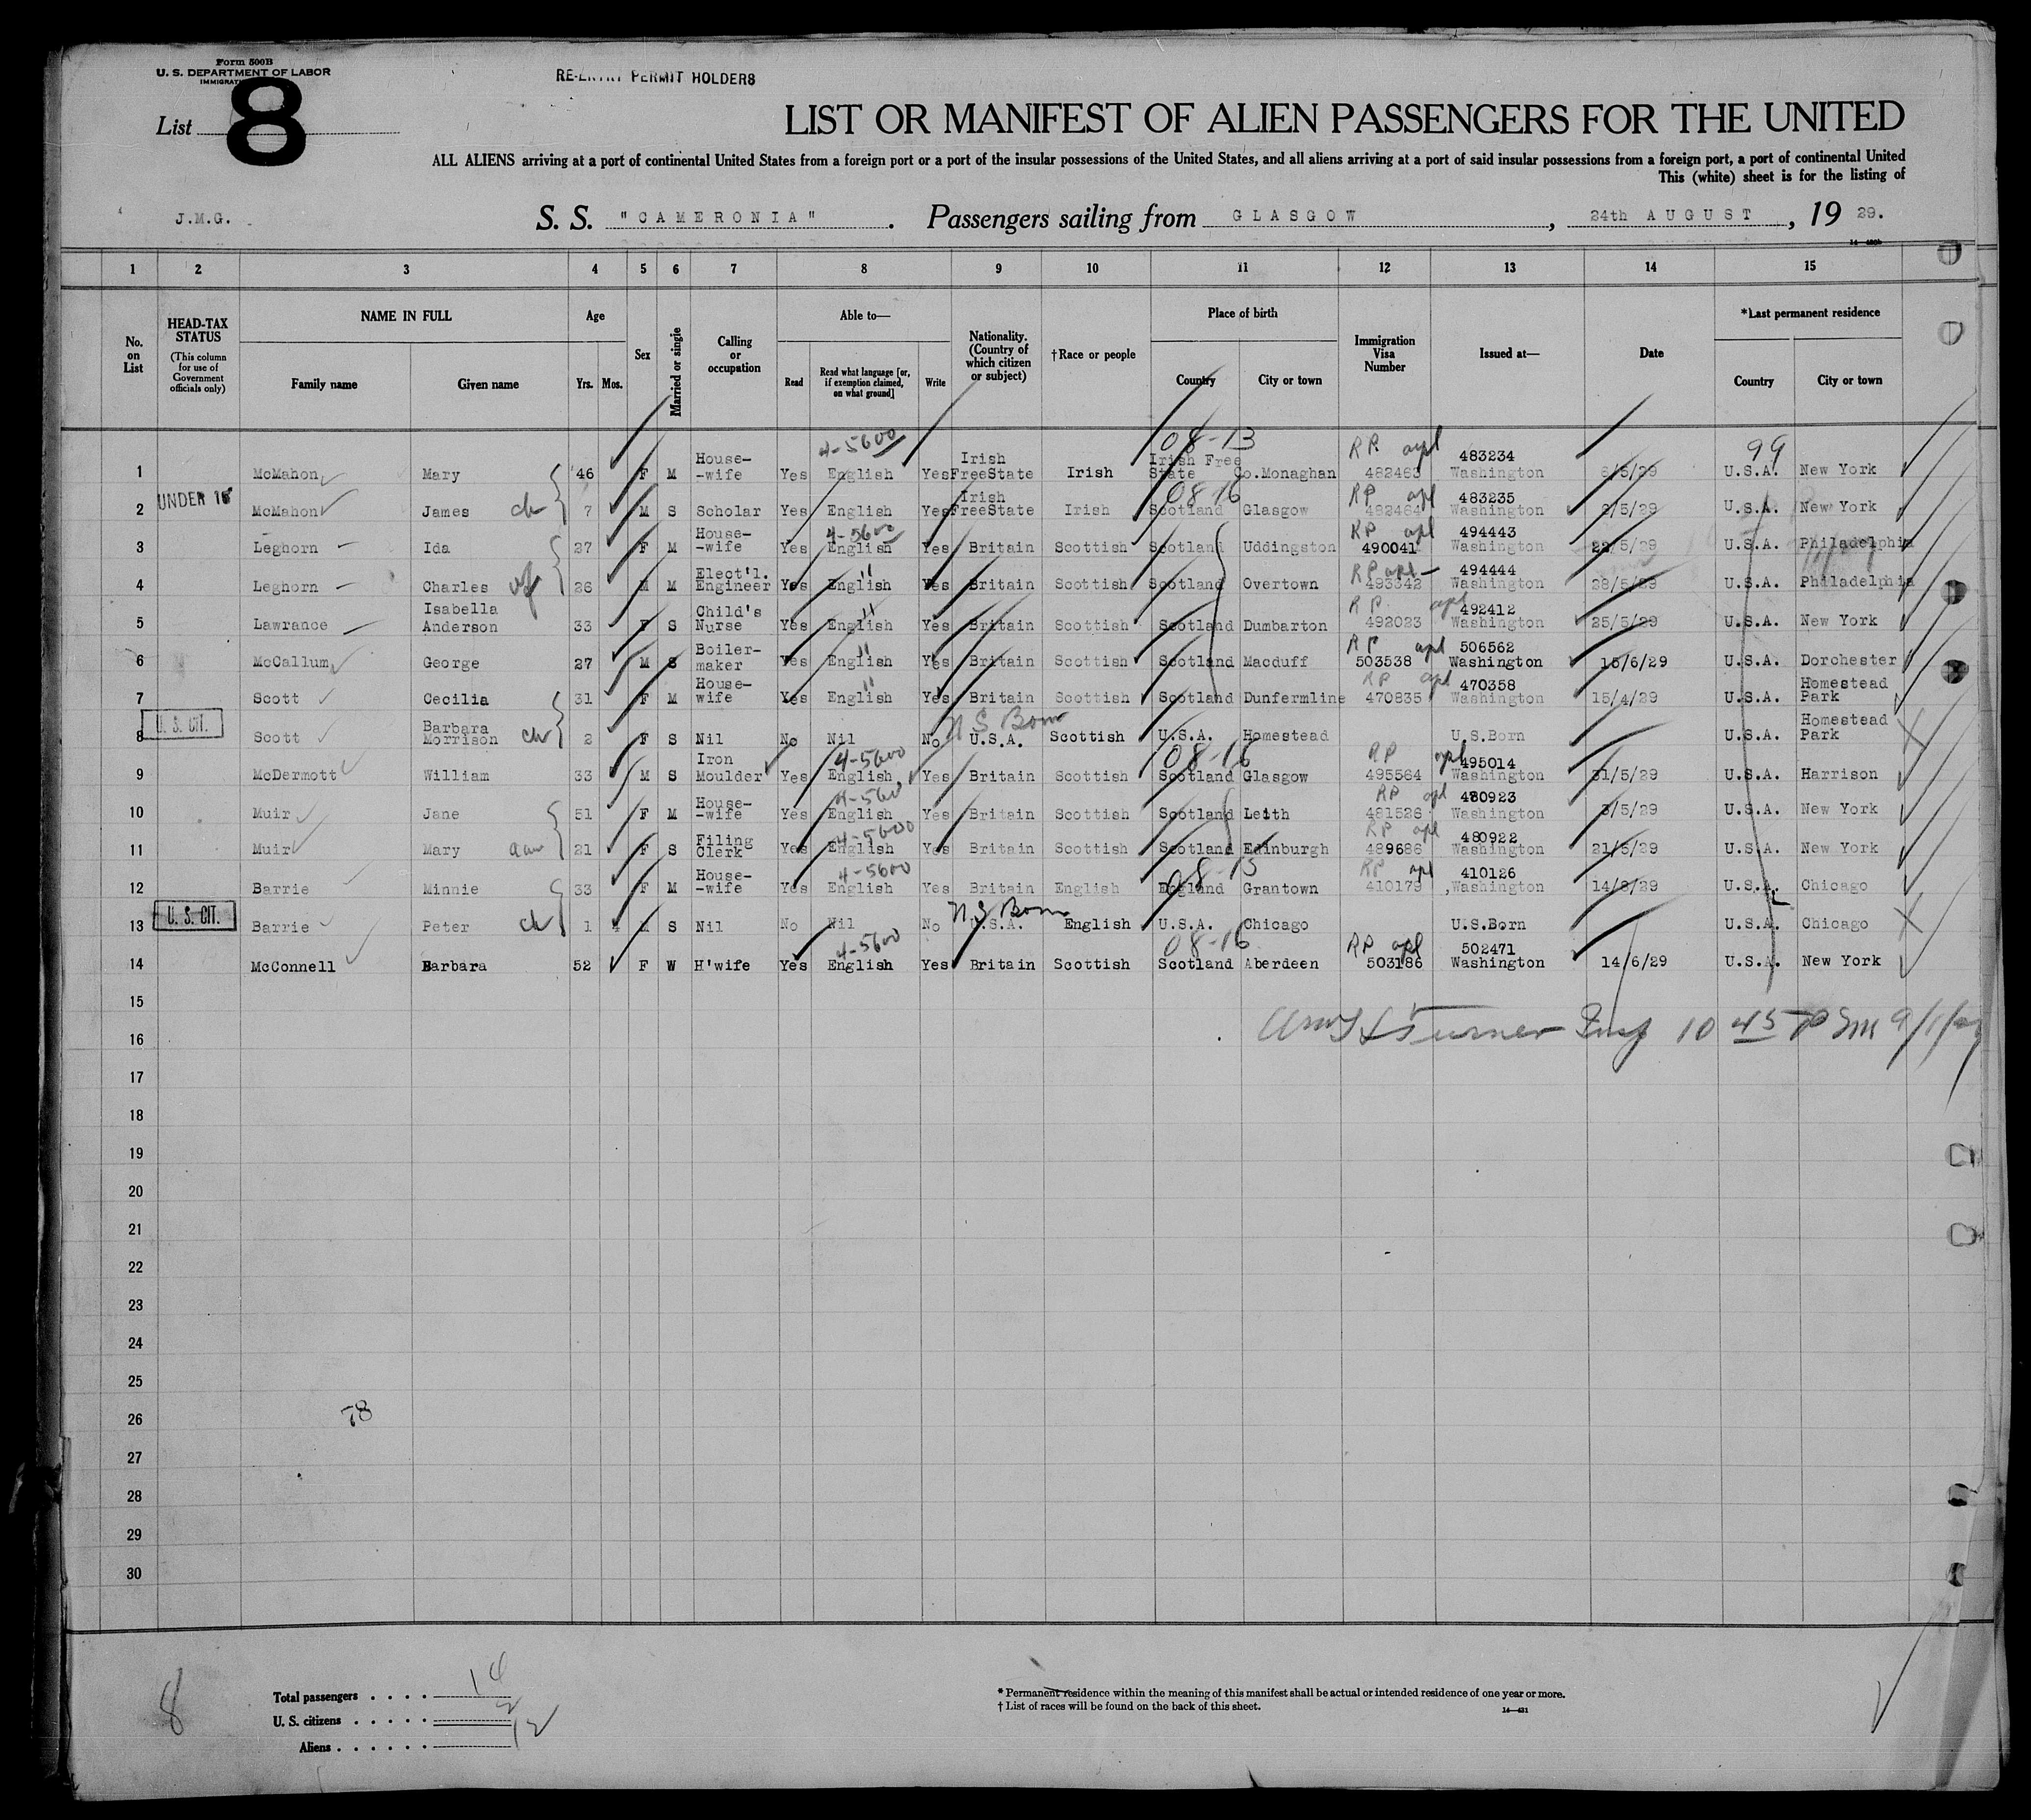 Form 500B
U. S. DEPARTMENT OF LABOR
RE-ENTRY PERMIT HOLDERS
List 8
LIST OR MANIFEST OF ALIEN PASSENGERS FOR THE UNITED
ALL ALIENS arriving at a port of continental United States from a foreign port or a port of the insular possessions of the United States, and all aliens arriving at a port of said insular possessions from a foreign port, a port of continental United
This (white) sheet is for the listing of
J.M.G. S. S. "CAMERONIA". Passengers sailing from GLASGOW, 24th AUGUST, 19 29.
1 2 3 4 5 6 7 8 9 10 11 12 13 14 15
No. on List
HEAD-TAX STATUS (This column for use of Government officials only)
NAME IN FULL Family name Given name
Age Yrs. Mos.
Sex
Married or single
Calling or occupation
Able to— Read Read what language [or, if exemption claimed, on what ground] Write
Nationality. (Country of which citizen or subject)
†Race or people
Place of birth Country City or town
Immigration Visa Number
Issued at—
Date
*Last permanent residence Country City or town
4-5600 08-13 RP apl 483234 99
1 McMahon Mary 46 F M House-wife Yes English Yes Irish FreeState Irish Irish Free State Co.Monaghan 482463 Washington 6/5/29 U.S.A. New York
UNDER 16 08-16 RP apl 483235
2 McMahon James ch 7 M S Scholar Yes English Yes Irish FreeState Irish Scotland Glasgow 482464 Washington 2/5/29 U.S.A. New York
4-5600 RP apl 494443
3 Leghorn Ida 27 F M House-wife Yes English Yes Britain Scottish Scotland Uddingston 490041 Washington 22/5/29 U.S.A. Philadelphia
" RP apl 494444
4 Leghorn Charles 26 M M Elect'l. Engineer Yes English Yes Britain Scottish Scotland Overtown 493342 Washington 28/5/29 U.S.A. Philadelphia
" RP apl 492412
5 Lawrance Isabella Anderson 33 F S Child's Nurse Yes English Yes Britain Scottish Scotland Dumbarton 492023 Washington 25/5/29 U.S.A. New York
" RP apl 506562
6 McCallum George 27 M S Boiler-maker Yes English Yes Britain Scottish Scotland Macduff 503538 Washington 15/6/29 U.S.A. Dorchester
" RP apl 470358
7 Scott Cecilia 31 F M House-wife Yes English Yes Britain Scottish Scotland Dunfermline 470835 Washington 15/4/29 U.S.A. Homestead Park
U. S. CIT. U S Born
8 Scott Barbara Morrison ch 2 F S Nil No Nil No U.S.A. Scottish U.S.A. Homestead U.S.Born U.S.A. Homestead Park
4-5600 08-16 RP apl 495014
9 McDermott William 33 M S Iron Moulder Yes English Yes Britain Scottish Scotland Glasgow 495564 Washington 31/5/29 U.S.A. Harrison
4-560 RP apl 480923
10 Muir Jane 51 F M House-wife Yes English Yes Britain Scottish Scotland Leith 481526 Washington 3/5/29 U.S.A. New York
4-5600 RP apl 480922
11 Muir Mary 21 F S Filing Clerk Yes English Yes Britain Scottish Scotland Edinburgh 489686 Washington 21/5/29 U.S.A. New York
4-5600 08-15 RP apl 410126
12 Barrie Minnie 33 F M House-wife Yes English Yes Britain English England Grantown 410179 Washington 14/8/29 U.S.A. Chicago
U. S. CIT. U S Born
13 Barrie Peter ch 1 M S Nil No Nil No U.S.A. English U.S.A. Chicago U.S.Born U.S.A. Chicago
4-5600 08-16 RP apl 502471
14 McConnell Barbara 52 F W H'wife Yes English Yes Britain Scottish Scotland Aberdeen 503186 Washington 14/6/29 U.S.A. New York
15
Turner Insp 10 45
16
17
18
19
20
21
22
23
24
25
26 78
27
28
29
30
8
Total passengers . . . . 14
U. S. citizens . . . . . 2
Aliens . . . . . . 12
* Permanent residence within the meaning of this manifest shall be actual or intended residence of one year or more.
† List of races will be found on the back of this sheet.
14—431